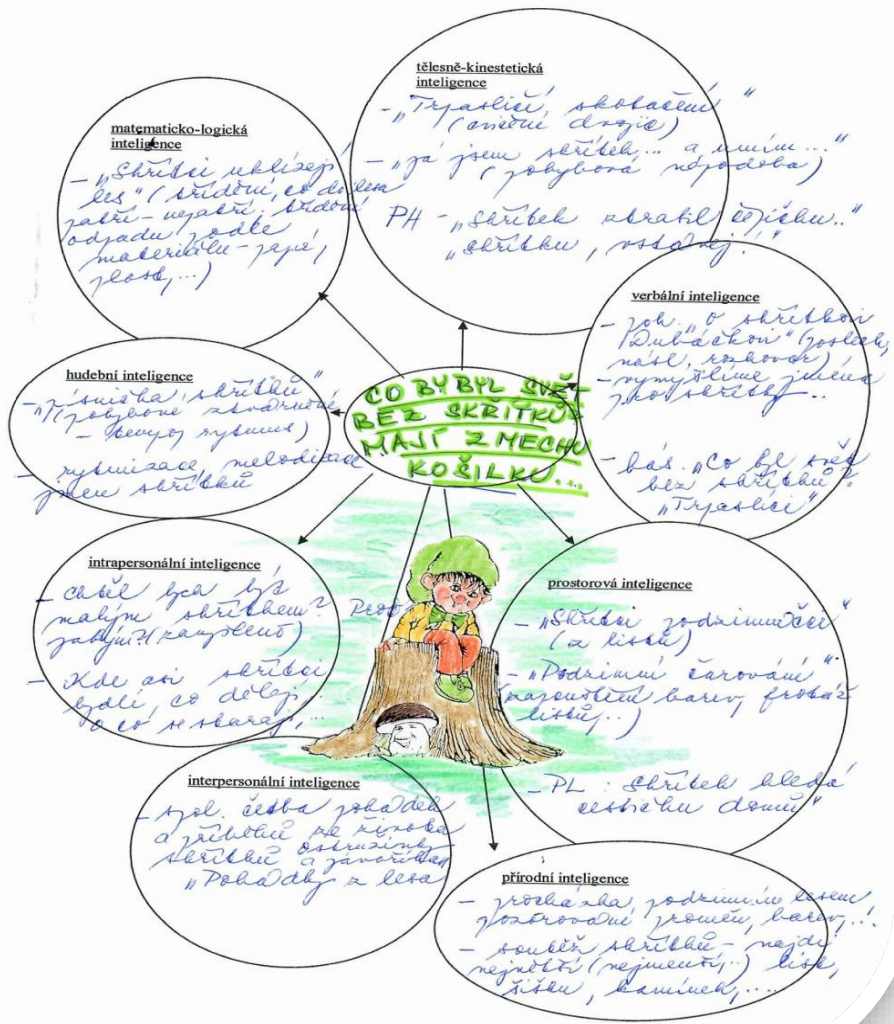 tělesně-kinestetická
inteligence
- „Trpasličí skotačení“
(cvičení dvojic)
- „já jsem skřítek... a umím...“
(pohybová nápodoba)
PH - „Skřítek ztratil čepičku..“
„Skřítku, vstávej!“
matematicko-logická
inteligence
- „Skřítci uklízejí
les“ (třídění, co do lesa
patří - nepatří, třídění
odpadu podle
materiálu - papír,
plast,...)
verbální inteligence
- poh. „O skřítkovi
Dubáčkovi“ (poslech,
násl. rozhovor)
- vymýšlíme jména
pro skřítky..
- bás. „Co by svět
bez skřítků?“
„Trpaslíci“
hudební inteligence
- „Písnička skřítků“
(pohybové ztvárnění
- rytmus)
- rytmizace, melodizace
jmen skřítků
CO BY BYL SVĚT
BEZ SKŘÍTKŮ
MAJÍ Z MECHU
KOŠILKU...
intrapersonální inteligence
- Chtěl bych být
malým skřítkem? Proč
jakým? (zamyšlení)
- Kde asi skřítci
bydlí, co dělají,
o co se starají,...
prostorová inteligence
- „Skřítci podzimníčci“
(z listů)
- „Podzimní čarování“
zapouštění barev, frotáž
listů,..)
- PL : Skřítek hledá
cestičku domů“
interpersonální inteligence
- spol. četba pohádek
a příběhů ze života
skřítků Ostružinky
a Javoříčka
„Pohádky z lesa
přírodní inteligence
- procházka podzimním lesem
pozorování proměn, barev,...
- soutěž skřítků - najdi
největší (nejmenší,..) list,
šišku, kamínek,....